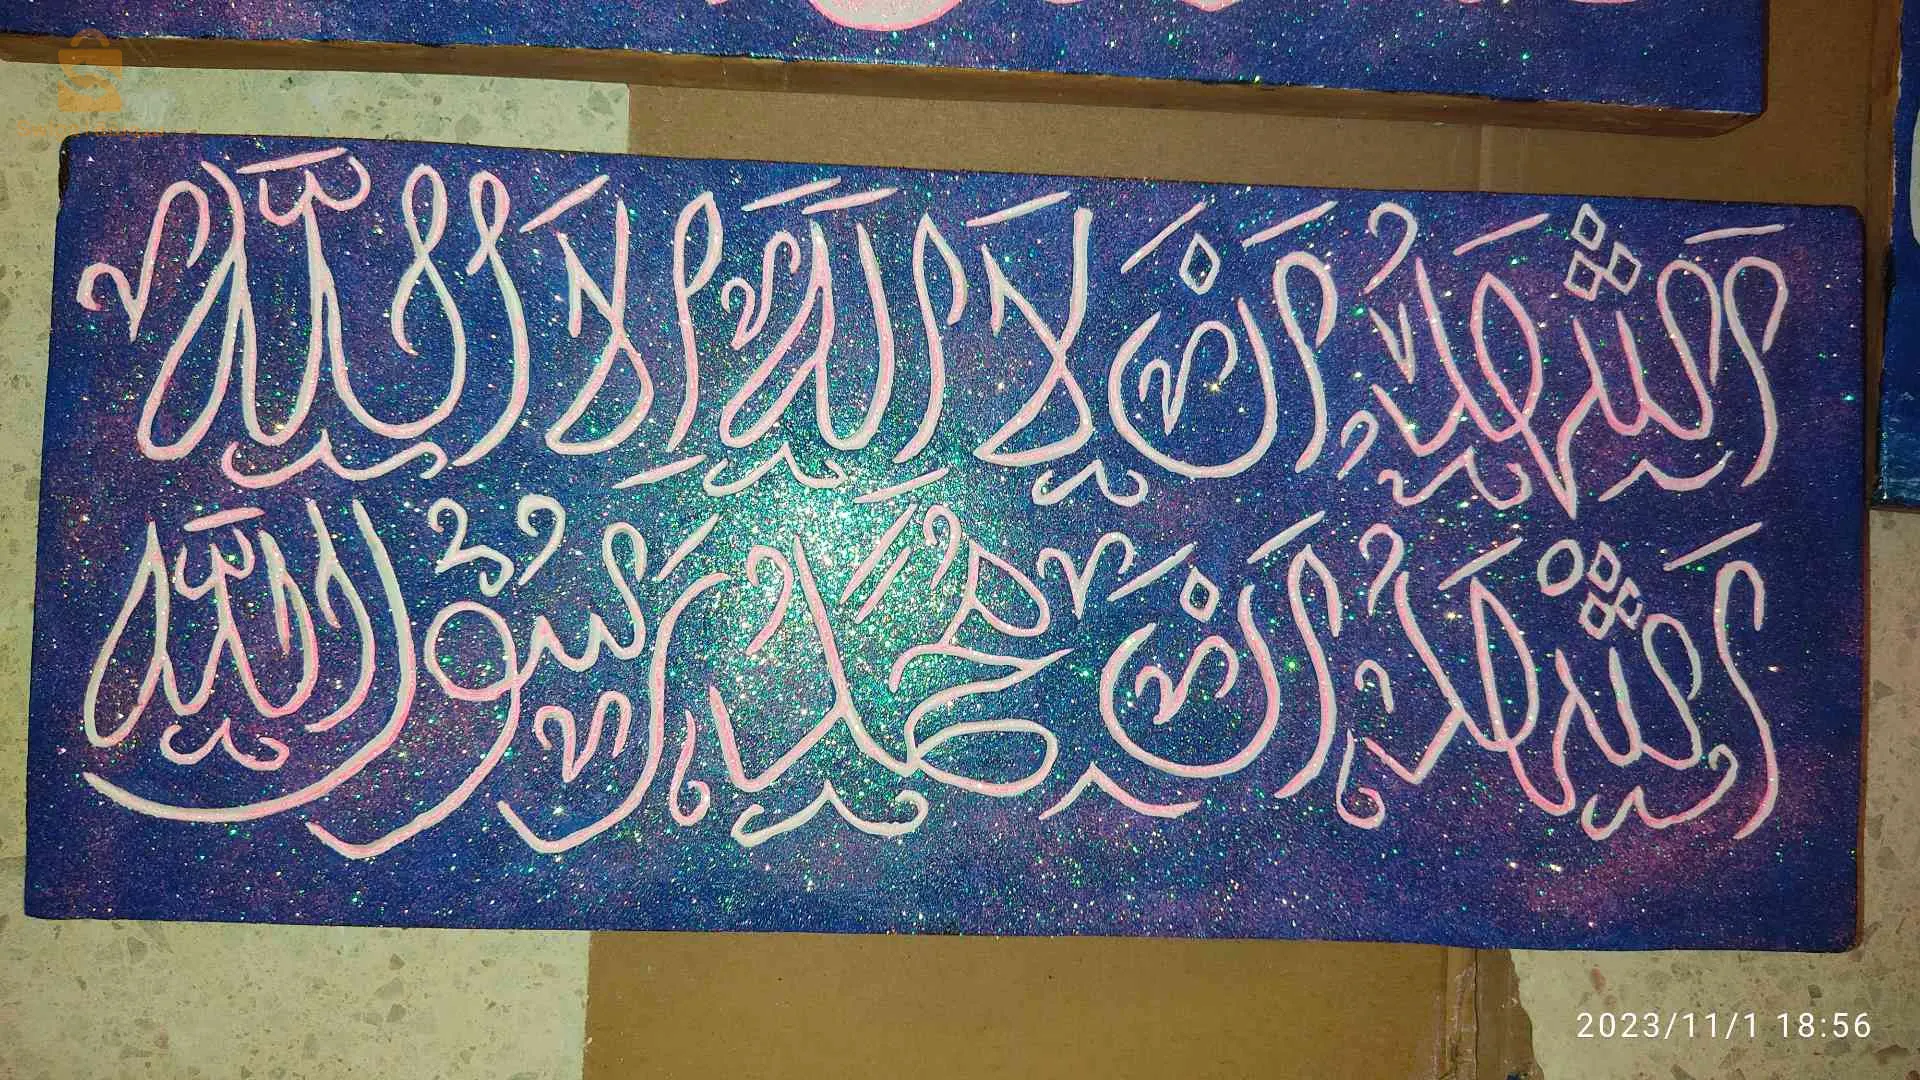 أشهد أن لا إله إلا الله
أشهد أن محمد رسول الله
2023/11/1 18:56